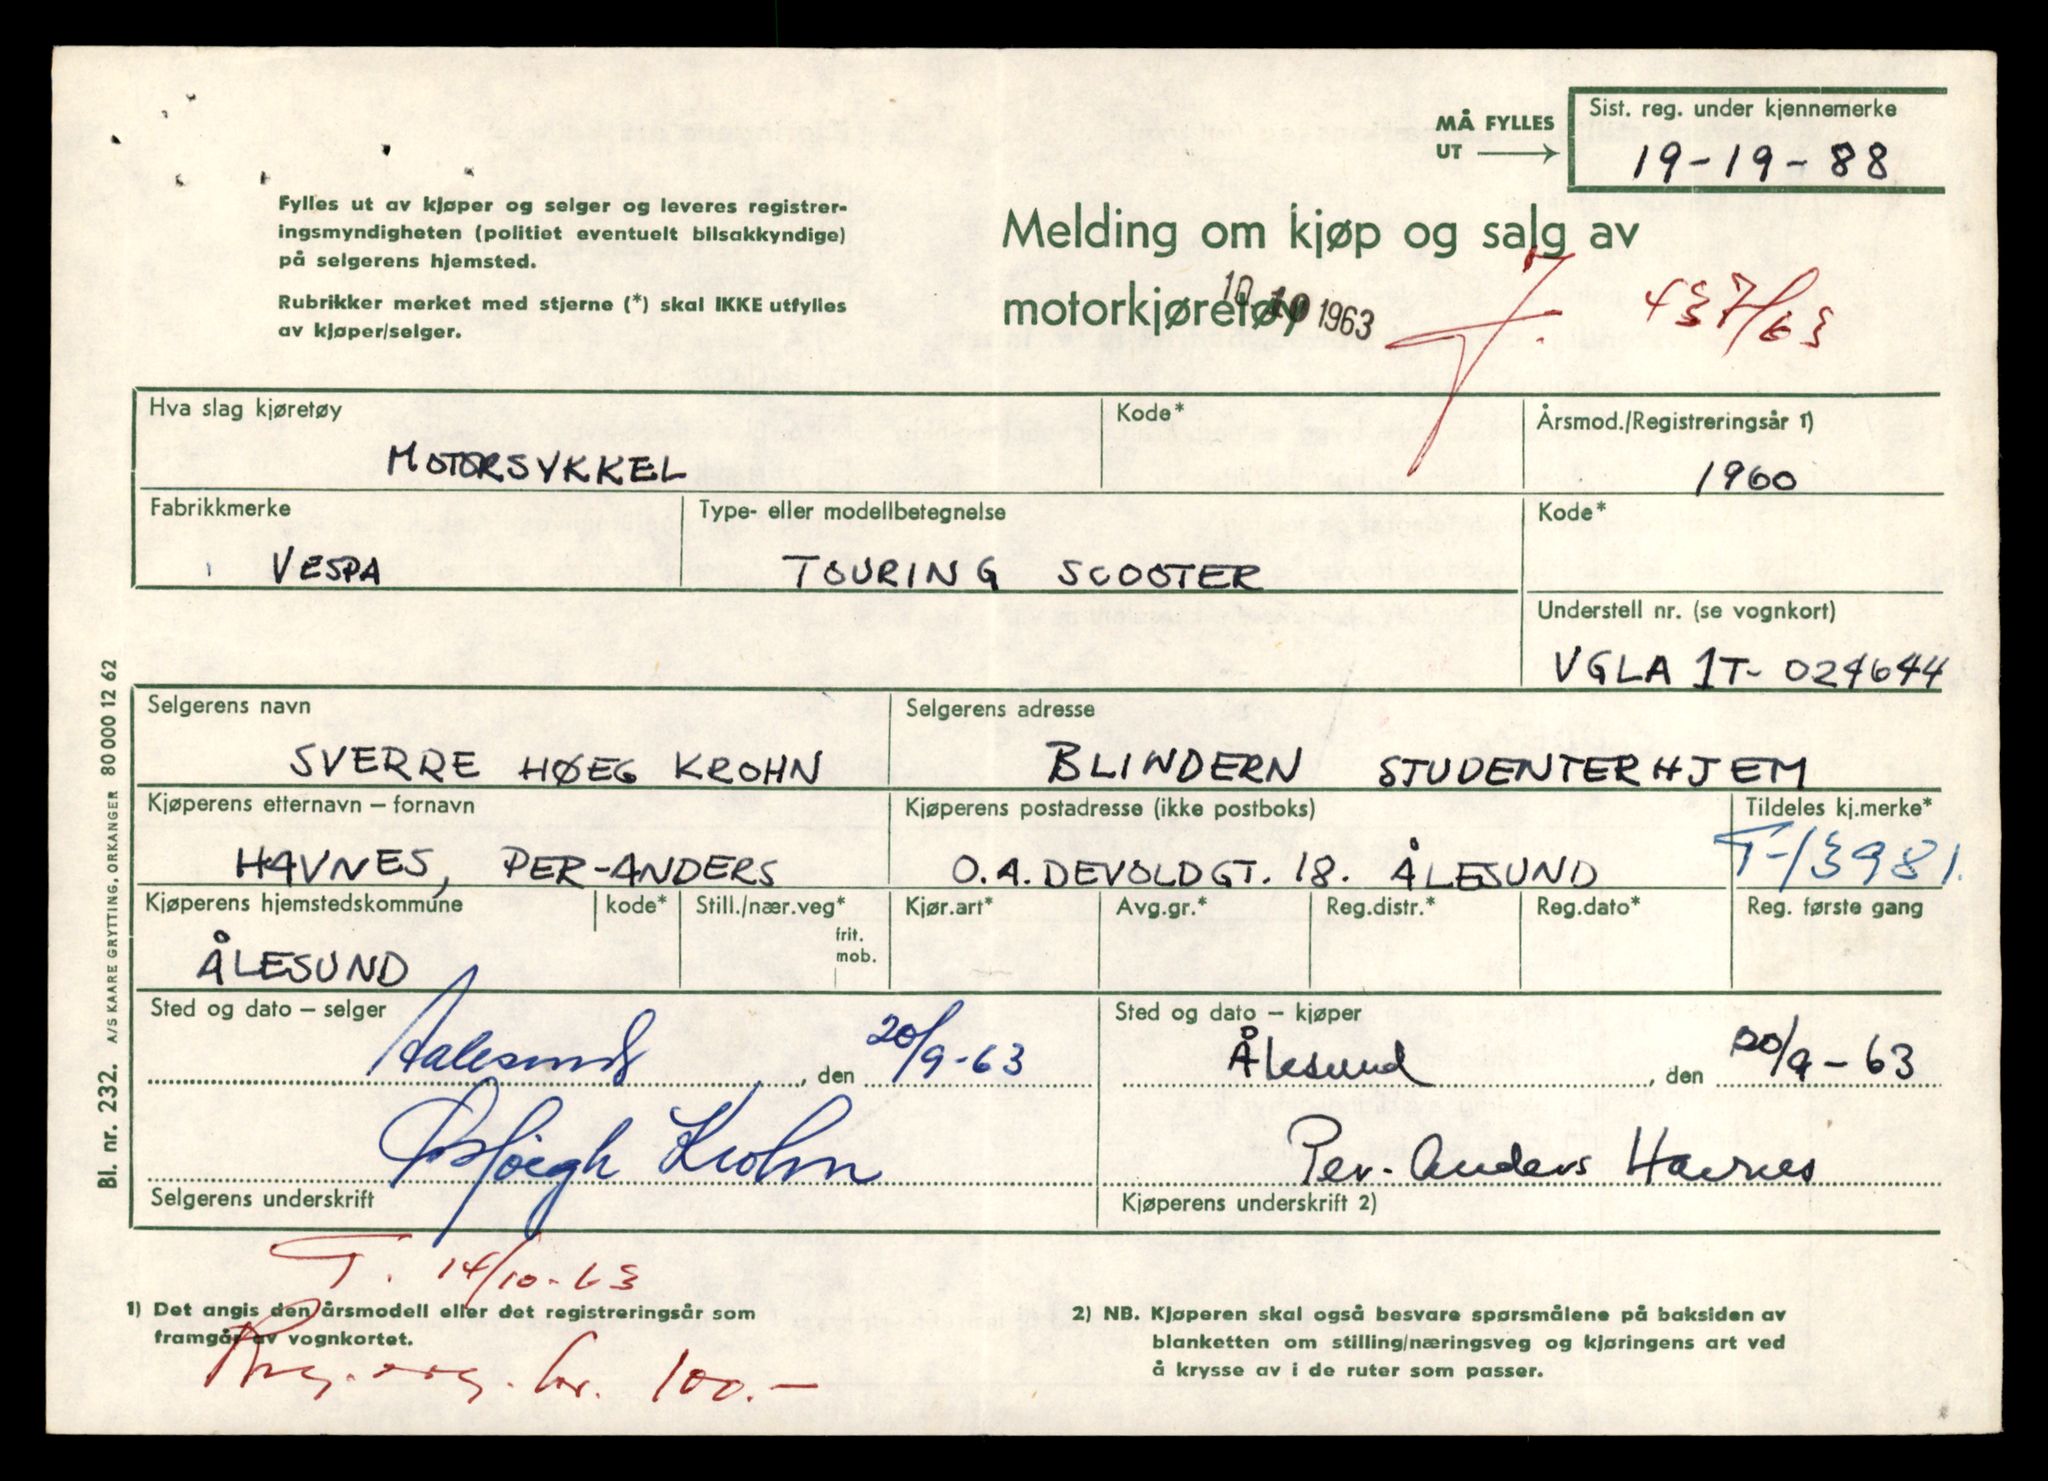 MÅ FYLLES
UT
Sist. reg. under kjennemerke
19-19-88
Fylles ut av kjøper og selger og leveres registrer-
ingsmyndigheten (politiet eventuelt bilsakkyndige)
på selgerens hjemsted.
Rubrikker merket med stjerne (*) skal IKKE utfylles
av kjøper/selger.
Melding om kjøp og salg av
motorkjøretøy
10 10 1963
T. 437/63
Hva slag kjøretøy
MOTORSYKKEL
Kode*
Årsmod./Registreringsår 1)
1960
Fabrikkmerke
VESPA
Type- eller modellbetegnelse
TOURING SCOOTER
Kode*
Understell nr. (se vognkort)
VGLA 1T- 024644
Selgerens navn
SVERRE HØEG KROHN
Selgerens adresse
BLINDERN STUDENTERHJEM
Kjøperens etternavn – fornavn
HAVNES, PER-ANDERS
Kjøperens postadresse (ikke postboks)
O.A. DEVOLDGT. 18. ÅLESUND
Tildeles kj.merke*
T-13981.
Kjøperens hjemstedskommune
ÅLESUND
kode*
Still./nær.veg*
frit.
mob.
Kjør.art*
Avg.gr.*
Reg.distr.*
Reg.dato*
Reg. første gang
Sted og dato – selger
Aalesund, den 20/9-63
Høegh Krohn
Selgerens underskrift
Sted og dato – kjøper
Ålesund, den 20/9-63
Per-Anders Havnes
Kjøperens underskrift 2)
T. 14/10-63
1) Det angis den årsmodell eller det registreringsår som
framgår av vognkortet.
kr. 100.-
2) NB. Kjøperen skal også besvare spørsmålene på baksiden av
blanketten om stilling/næringsveg og kjøringens art ved
å krysse av i de ruter som passer.
Bl. nr. 232. A/S KAARE GRYTTING, ORKANGER 80 000 12 62